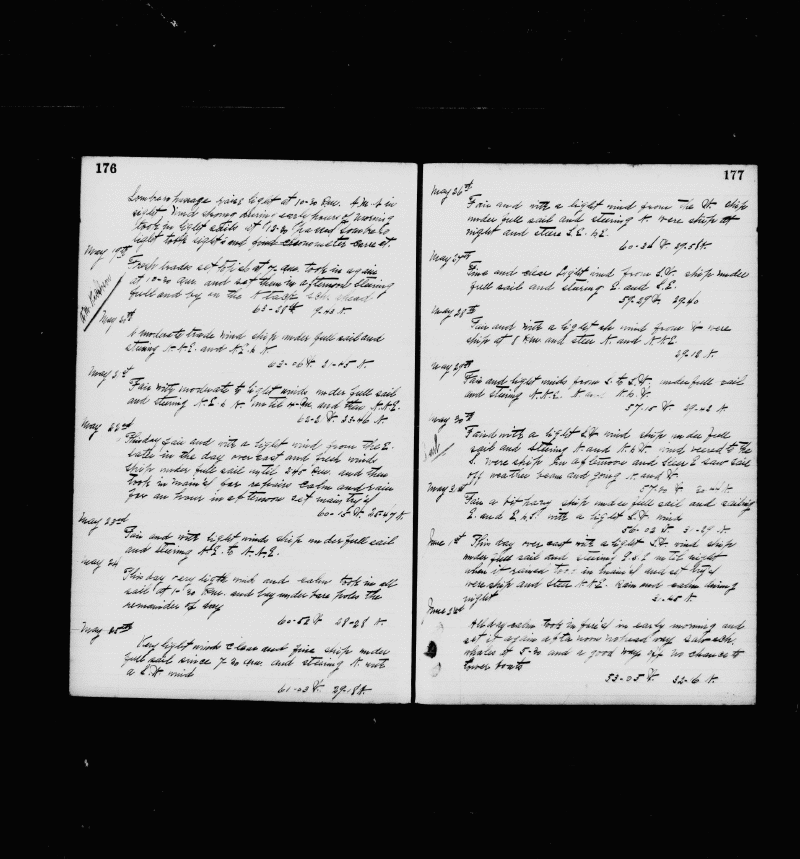 176
Sombrero Passage fine light at 10-30 P.M. A.M. in
sight Wind strong during early hours of morning
took in light sails at 12-30 P.M.
light
May 19th
Fresh trades set at 7 A.M. took in again
at 10-30 A.M. and set them in afternoon steering
full and by in the N
63-28 W. 
May 20th
A moderate trade wind ship under full sail and
steering N.N.E. and N.E. & N.
63-06 W. 21-45 N.
May 21st
Fair with moderate to light winds under full sail
and steering N.E. & N. until and then N.N.E.
62-2 W. 23-46 N.
May 22nd
This day fair and with a light wind from the E.
later in the day overcast and fresh winds
Ship under full sail until 245 P.M. and then
took in main's'l for repairs calm and rain
for an hour in afternoon set main try's'l
60-15 W. 25-47 N.
May 23rd
Fair and with light winds ship under full sail
and steering N.E. to N.N.E.
May 24
This day very light wind and calm took in all
sail at P.M. and lay under bare poles the
remainder of day
60-52 W. 28-28 N.
May 25th
Very light winds clear and fine ship under
full sail since 7-30 A.M. and steering N. with
a wind
61-03 W. 29-18 N.
177
May 26th
Fair and with a light wind from the W. ship
under full sail and steering N. wore ship at
night and steer S.E. & E.
60-26 W. 29-58 N.
May 27th
Fine and clear light wind from S.W. ship under
full sail and steering E. and S.E.
59-29 W. 29-40
May 28th
Fair and with a light wind from wore
ship at 8 P.M. and steer N. and N.N.E.
29-12 N.
May 29th
Fair and light winds from S. to S.W. under full sail
and steering N.N.E. N.
57-15 W. 29-42 N.
May 30th
Sail
Fair with a light S.W. wind ship under full
sail and steering N. and N. & W. wind veered to the
S. wore ship in afternoon and steer E saw sail
off weather beam and going N. and W.
57-20 W.
May 31st
Fair a bit hazy ship under full sail and sailing
E. and E. & S. with a light S.W. wind
56-02 W. 31-29 N.
June 1st
This day over cast with a light S.W. wind ship
under full sail and steering E. & S. until night
when it rained took in main's'l and set try's'l
wore ship and steer N.N.E. Rain and calm during
night
June 2nd
All day calm took in fore's'l in early morning and
set it again afternoon
whales at 5-30 and a good way off no chance to
lower boats
53-05 W. 32-16 N.